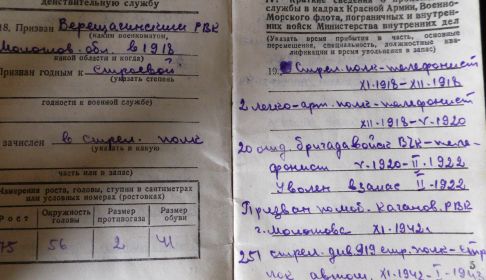 действительную службу
18. Призван Верещагинским РВК
(каким военкоматом,
Молотов. обл. в 1918
какой области и когда)
Признан годным к строевой
(указать степень
годности к военной службе)
зачислен в стрел. полк
(указать в какую
часть или в запас)
Измерения роста, головы, ступни в сантиметрах
или условных номерах (ростовках)
Рост Окружность головы Размер противогаза Размер обуви
75 56 2 41
службы в кадрах Красной Армии, Военно-
Морского флота, пограничных и внутрен-
них войск Министерства внутренних дел
(Указать время прибытия в часть, основные
перемещения, специальность, должностные ква-
лификации и время увольнения в запас)
19 Стрел. полк-телефонист
XI-1918-XII-1918
2 легко-арт. полк-телефонист
XII-1918-V-1920
20 отд. бригада войск ВЧК-теле-
фонист V-1920-II-1922
Уволен в запас II-1922
Призван по моб. Каганов. РВК
г. Молотова XI-1942г.
251 стрел. див. 919 стр. полк-стре
лок автом XI-1942-I-1943
5